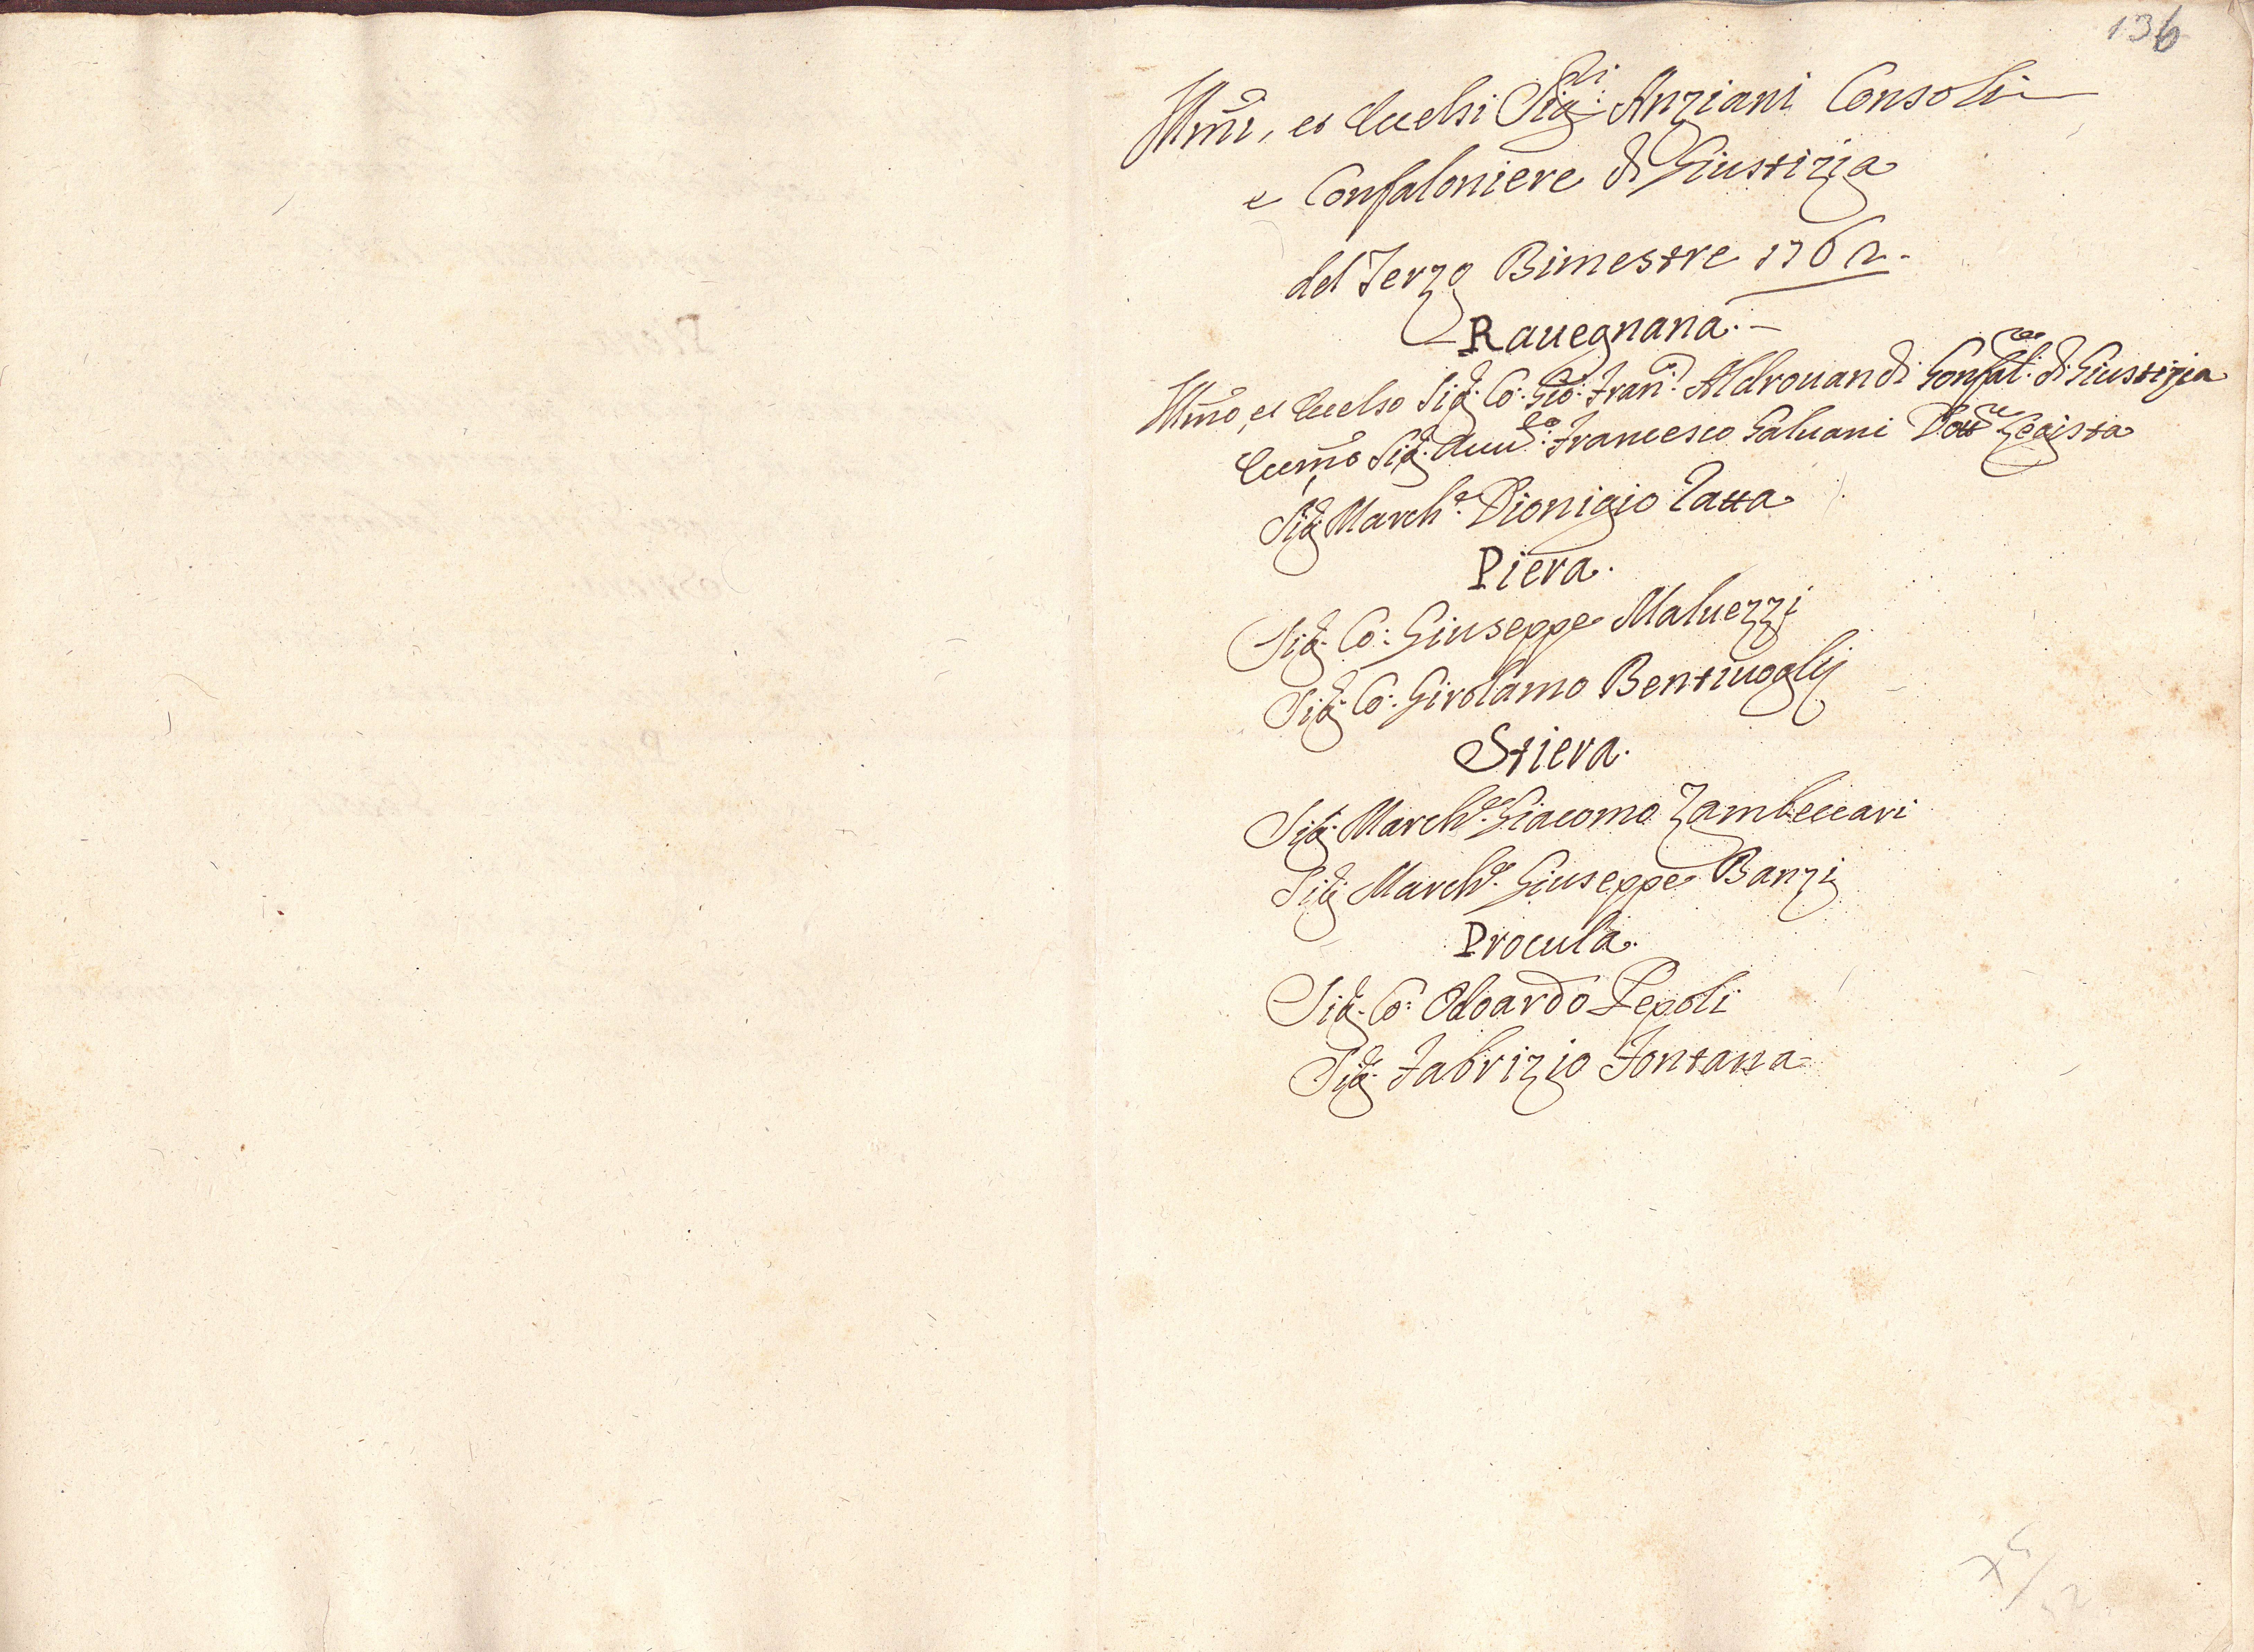 136
Illmi, et Eccelsi Sigli: Anziani Consoli
e Confaloniere di Giustizia
del Terzo Bimestre 1762.
Rauegnana.
Illmo, et Eccelso Sig. Co: Gio: Franco: Aldrouandi Confalre: di Giustizia
Eccmo Sig. Auuto: Francesco Galuani Dottre Legista
Sig. Marche. Dionigio Tatta
Piera.
Sig. Co: Giuseppe Maluezzi
Sig. Co: Girolamo Bentiuoglij
Stiera.
Sig. Marche. Giacomo Zambeccari
Sig. Marche. Giuseppe Banzi
Procula.
Sig. Co: Odoardo Pepoli
Sig. Fabrizio Fontana